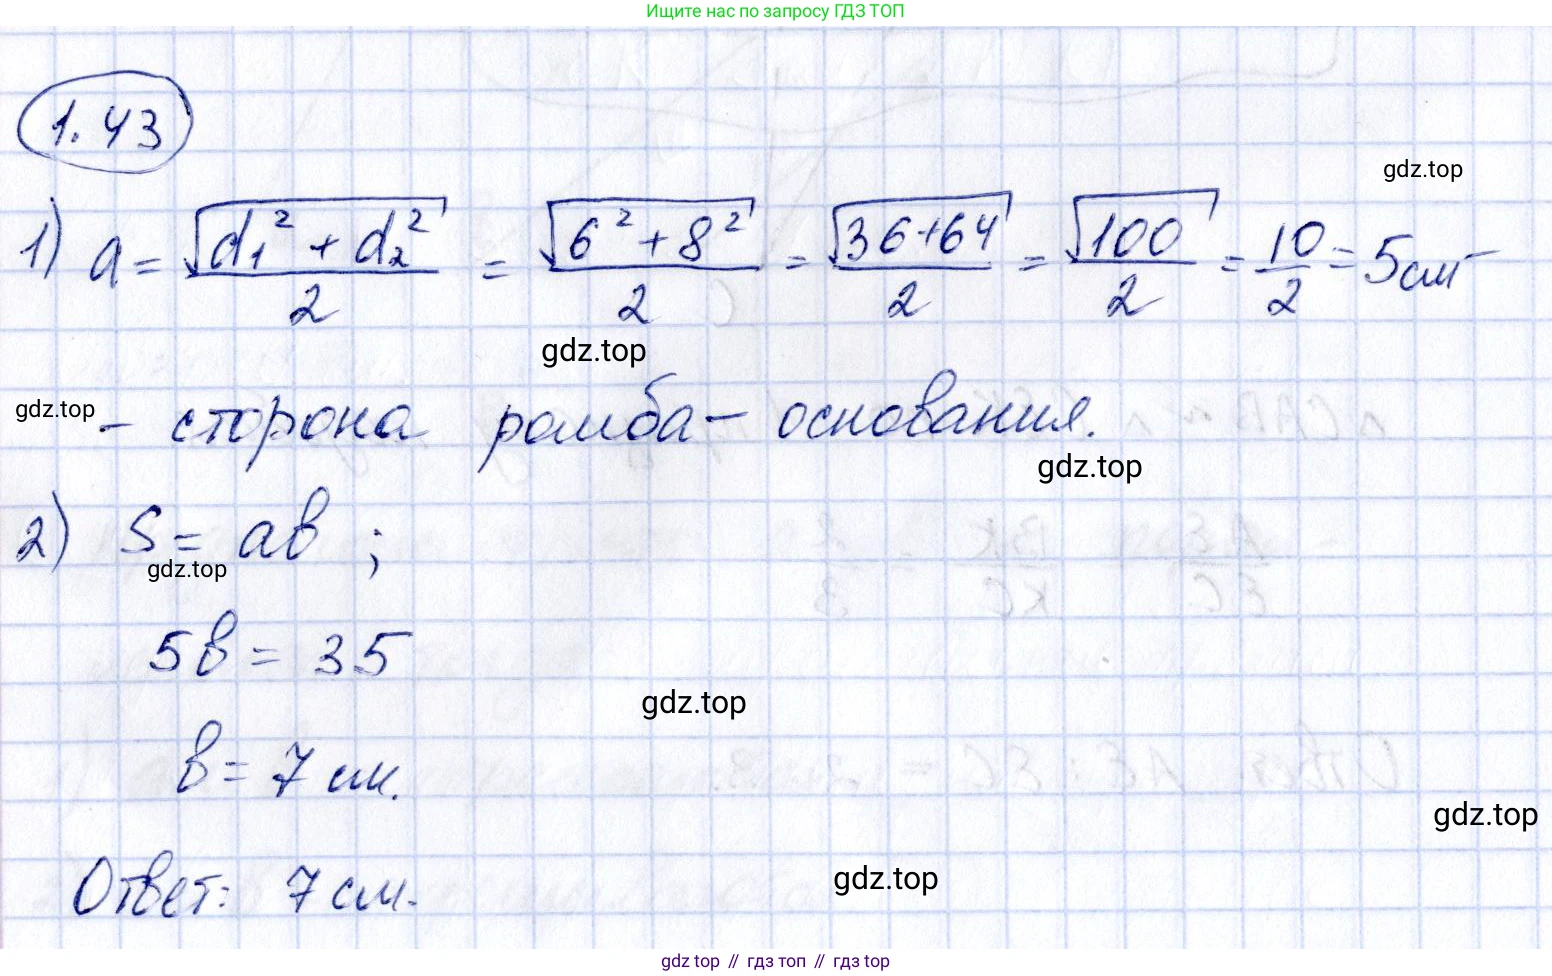 Ищите нас по запросу ГДЗ ТОП
1.43
gdz.top
1) a = √(d₁² + d₂²)/2 = √(6² + 8²)/2 = √(36+64)/2 = √100/2 = 10/2 = 5 см –
gdz.top
gdz.top
– сторона ромба – основания.
gdz.top
2) S = aв ;
gdz.top
5в = 35
gdz.top
в = 7 см.
gdz.top
Ответ: 7 см.
gdz.top
gdz top // гдз топ // гдз top